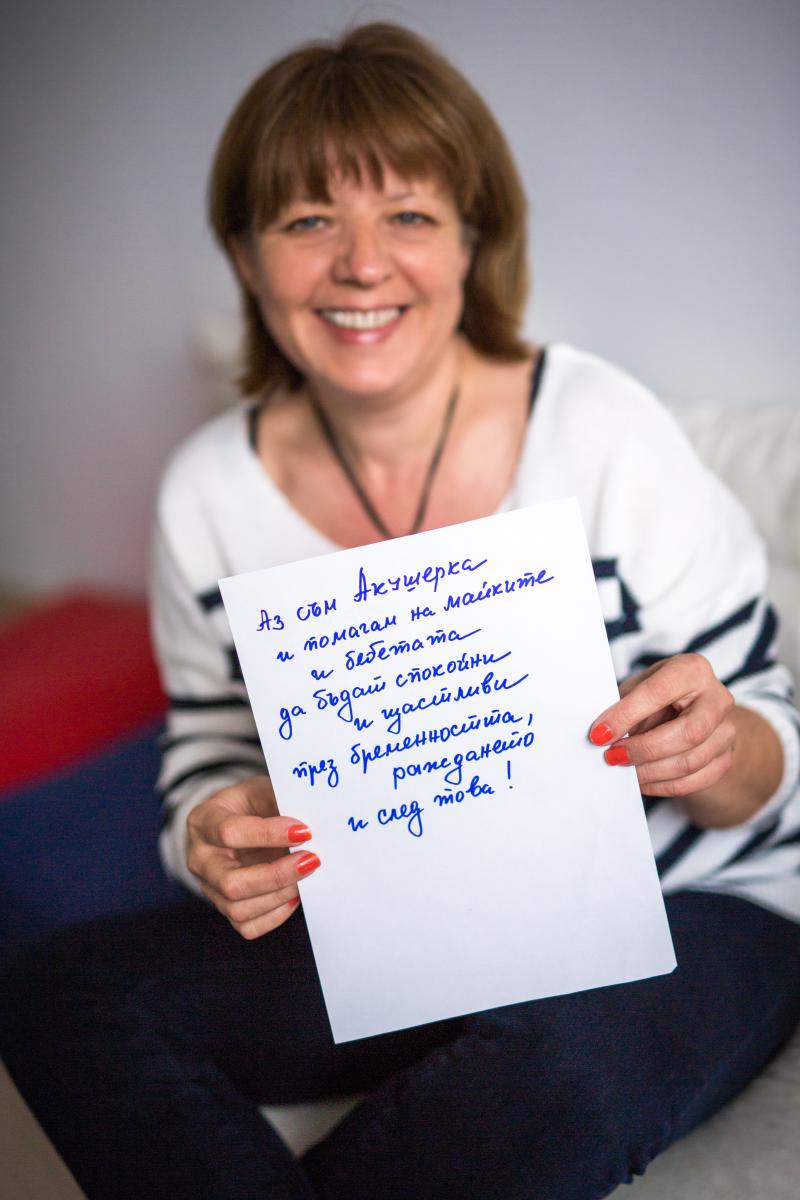 Аз съм Акушерка
и помагам на майките
и бебетата
да бъдат спокойни
и щастливи
през бременността,
раждането
и след това!